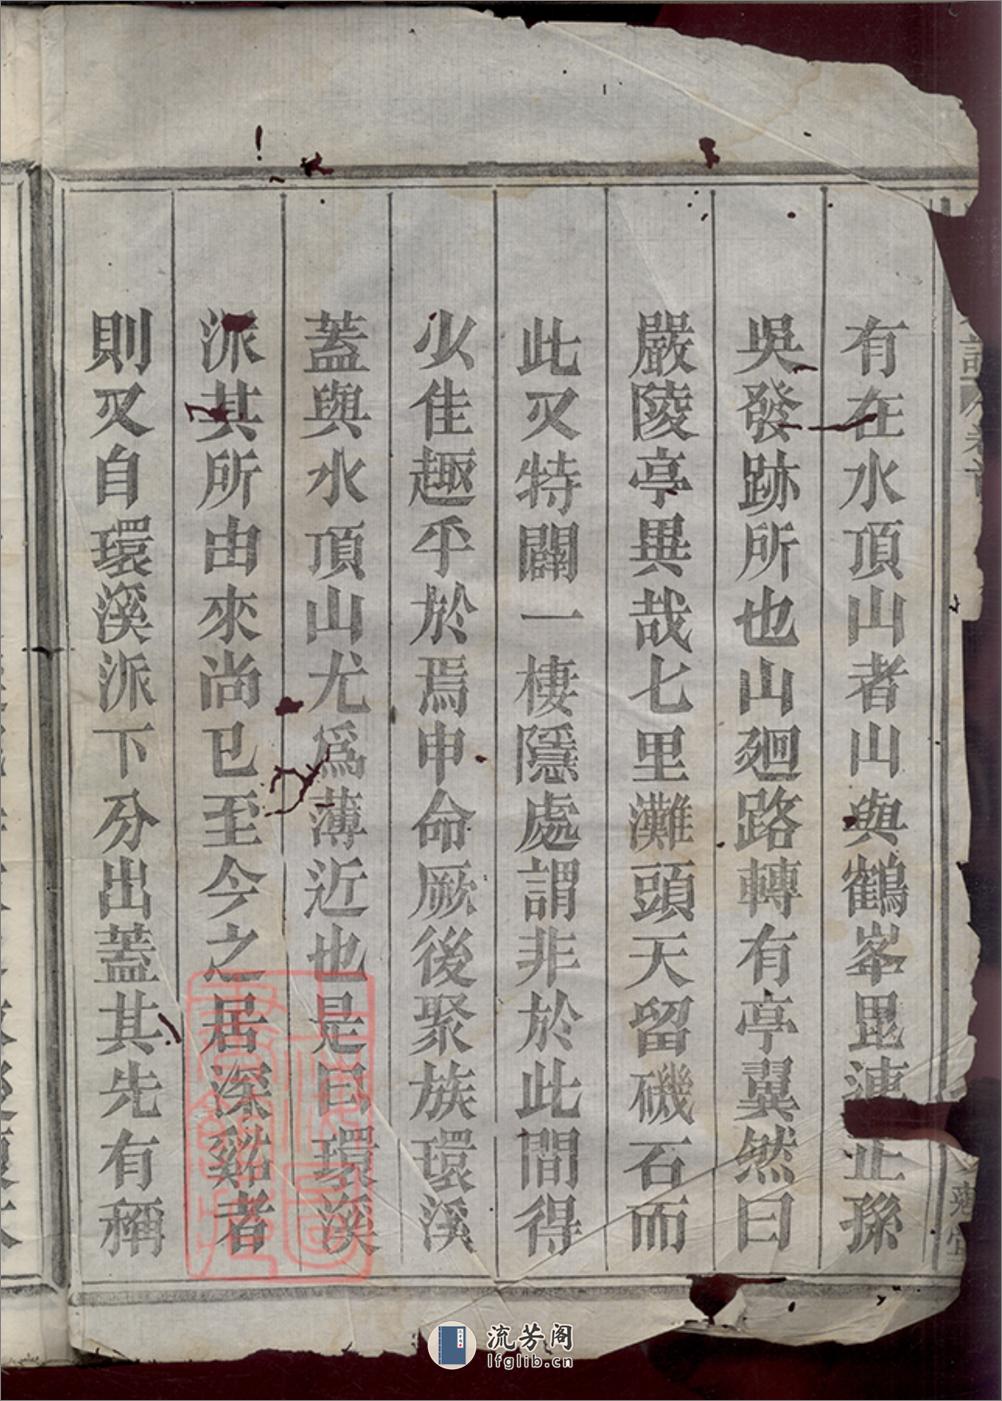 有在水頂山者山與鶴峯毘連正孫
吳發跡所也山廻路轉有亭翼然曰
嚴陵亭異哉七里灘頭天留磯石而
此又特闢一棲隱處謂非於此間得
少佳趣乎於焉申命厥後聚族環溪
蓋與水頂山尤爲薄近也是曰環溪
派其所由來尚已至今之居深谿者
則又自環溪派下分出蓋其先有稱
流芳阁
lfglib.cn